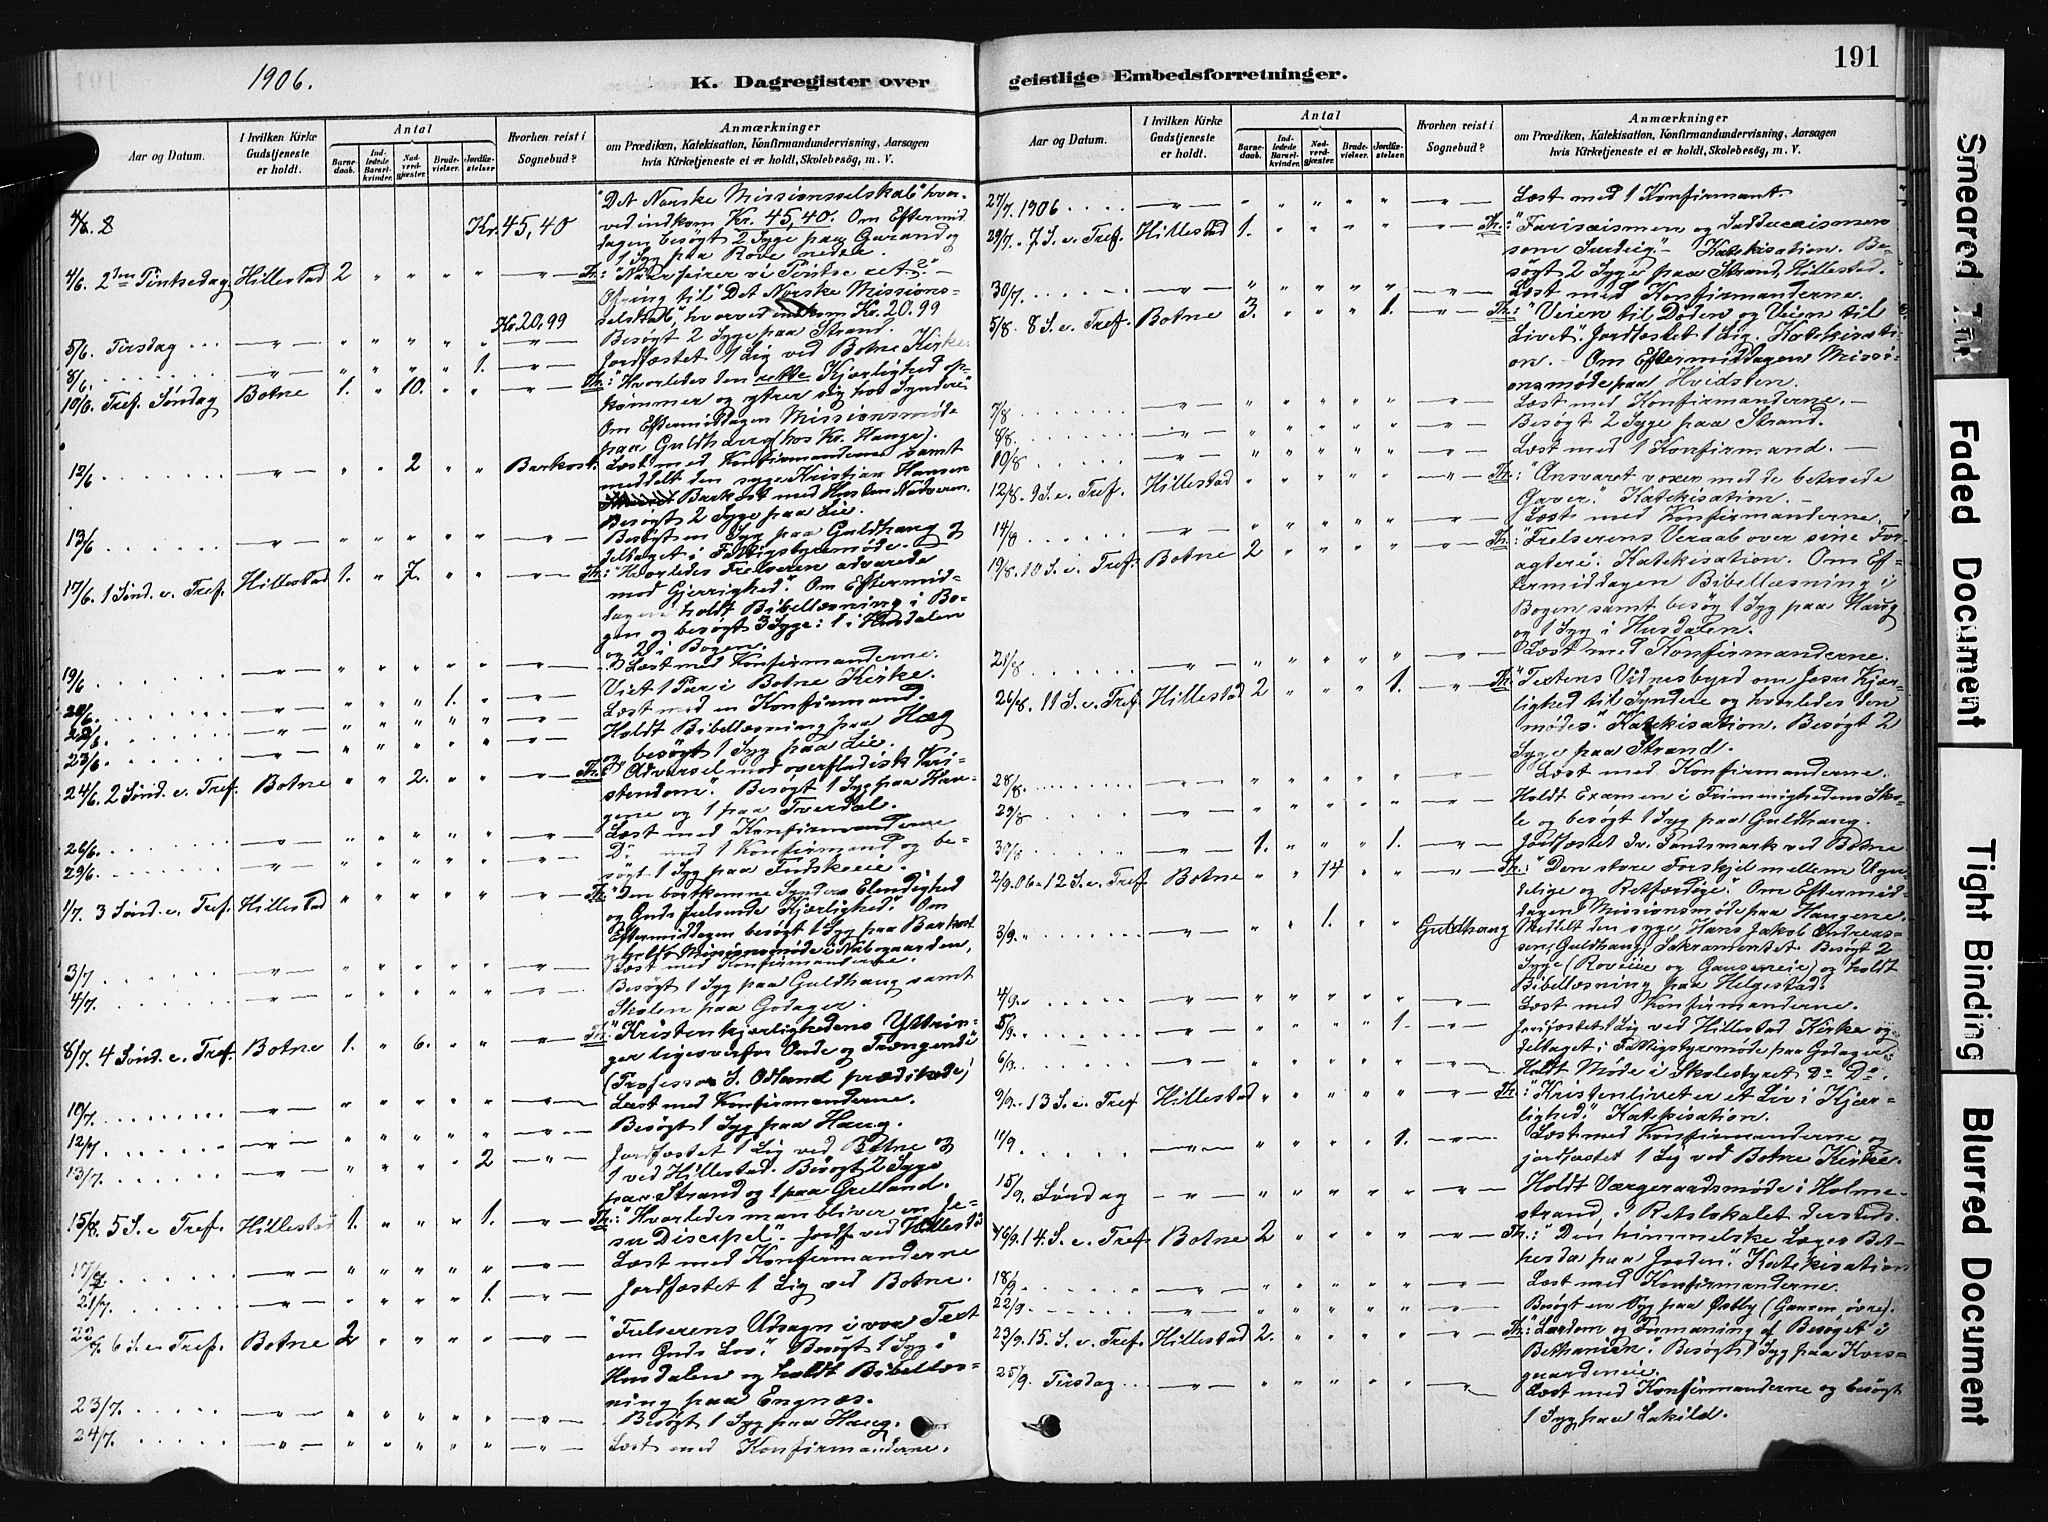 1906.
K. Dagregister over
Aar og Datum.
I hvilken Kirke Gudstjeneste er holdt.
Antal
Barnedaab.
Indledede Barselkvinder.
Nadverdgjæster.
Brudevielser.
Jordfæstelser
Hvorhen reist i Sognebud?
Anmærkninger
om Prædiken, Katekisation, Konfirmandundervisning, Aarsagen
hvis Kirketjeneste ei er holdt, Skolebesøg, m. V.
"Det Norske Missionsselskab" hvor-
Kr. 45,40 ved indkom Kr. 45,40. Om Eftermid
dagen besøgt 2 Syge paa Garand og
1 Syg paa Rove nedre.
4/6. 2den Pintsedag Hillestad 2 " " " " —"— Th: "Naar feirer vi Pintse ret?" —
Ofring til "Det Norske Missions-
Kr. 20,99 selskab", hvorved indkom Kr. 20.99
5/6. Tirsdag —"— " " " " " —"— Besøgt 2 Syge paa Strand.
8/6. —"— " " " " 1. —"— Jordfæstet 1 Lig ved Botne Kirke.
10/6. Tref. Søndag Botne 1. " 10. " " —"— Th: "Hvorledes den rette Kjærlighed op-
kommer og ytrer sig hos Syndere."
Om Eftermiddagen Missionsmøde
paa Guldhaug (hos Kr. Hauge).
12/6 —"— " " 2 " " Barkost. Læst med Konfirmanderne samt
meddelt den syge Kristian Hansen
Barkost med Hustru Nadveren.
Besøgt 2 Syge paa Lie.
13/6 —"— " " " " " —"— Besøgt en Syg paa Guldhaug og
deltaget i Fattigstyremøde.
17/6. 1 Sønd. e. Tref. Hillestad 1. " 7. " " —"— Th: "Hvorledes Frelseren advarede
mod Gjerrighed". Om Eftermid-
dagen holdt Bibellæsning i Bo-
gen og besøgt 3 Syge: 1 i Husdalen
og 2 i Bogen.
19/6 —"— " " " " " —"— Læst med Konfirmanderne.
—"— " " " 1. " —"— Viet 1 Par i Botne Kirke.
22/6. —"— " " " " " —"— Læst med en Konfirmand.
23/6. —"— " " " " " —"— Holdt Bibellæsning paa Hæg
og besøgt 1 Syg paa Lie.
24/6. 2 Sønd. e. Tref. Botne " " 2. " " —"— Th: "Advarsel mod overfladisk Kri-
stendom." Besøgt 1 Syg paa Hau-
gene og 1 paa Tverdal.
26/6. —"— " " " " " —"— Læst med Konfirmanderne
29/6. —"— " " " " " —"— Do med 1 Konfirmand og be-
søgt 1 Syg paa
1/7. 3 Sønd. e. Tref. Hillestad " " " " " —"— Th: "Den bortkomne Synders Elendighed
og Guds frelsende Kjærlighed." Om
Eftermiddagen besøgt 1 Syg paa Barkost
og holdt Missionsmøde i Nabogaarden,
3/7 —"— " " " " " —"— Læst med Konfirmanderne.
4/7. —"— " " " " " —"— Besøgt 1 Syg paa Guldhaug samt
Skolen paa Godager.
8/7. 4 Sønd. e. Tref. Botne 1. " 6. " " —"— Th: "Kristenkjærlighedens Yttrin-
ger ligeoverfor Onde og Trængende"
(Professor S. Odland prædikede)
10/7. —"— " " " " " —"— Læst med Konfirmanderne.
12/7 —"— " " " " " —"— Besøgt 1 Syg paa Haug.
13/7. —"— " " " " 2 —"— Jordfæstet 1 Lig ved Botne og
1 ved Hillestad. Besøgt 2 Syge
paa Strand og 1 paa Grelland.
5 S. e Tref. Hillestad 1. " " " 1. —"— Th: "Hvorledes man bliver en Je-
su Discipel". Jordf. ved Hillestad
17/7. —"— " " " " " —"— Læst med Konfirmanderne
21/7. —"— " " " " 1. —"— Jordfæstet 1 Lig ved Botne.
22/7. 6 S. e. Tref. Botne 2 " " " " —"— "Frelserens Udsagn i vor Text
om Guds Lov." Besøgt 1 Syg i
Husdalen og holdt Bibellæs-
ning paa Engnæs.
23/7. —"— " " " " " —"— Besøgt 1 Syg paa Haug.
24/7. —"— " " " " " —"— Læst med Konfirmanderne.
geistlige Embedsforretninger.
191
Aar og Datum.
I hvilken Kirke Gudstjeneste er holdt.
Antal
Barnedaab.
Indledede Barselkvinder.
Nadverdgjæster.
Brudevielser.
Jordfæstelser.
Hvorhen reist i Sognebud?
Anmærkninger
om Prædiken, Katekisation, Konfirmandundervisning, Aarsagen
hvis Kirketjeneste ei er holdt, Skolebesøg, m. V.
27/7. 1906 —"— " " " " " —"— Læst med 1 Konfirmant.
29/7. 7 S. e. Tref. Hillestad 1. " " " " —"— Th: "Farisæismen og Sadducæismen
som Surdeig". Katekisation. Be-
søgt 2 Syge paa Strand, Hillestad.
30/7. —"— " " " " " —"— Læst med Konfirmanderne.
5/8. 8 S. e. Tref. Botne 3. " " " 1. —"— Th: "Veien til Døden og Veien til
Livet". Jordfæstet 1 Lig. Katekisati-
on. Om Eftermiddagen Missi-
onsmøde paa Hvidsten.
7/8 —"— " " " " " —"— Læst med Konfirmanderne. —
8/8. —"— " " " " " —"— Besøgt 2 Syge paa Strand.
10/8 —"— " " " " " —"— Læst med 1 Konfirmand. —
12/8. 9 S. e. Tref. Hillestad " " " " " —"— Th: "Ansvaret voxer med de betroede
Gaver." Katekisation. —
14/8 —"— " " " " " —"— Læst med Konfirmanderne.
19/8. 10 S. e. Tref. Botne 2 " " " " —"— Th: "Frelserens Veraab over sine For-
agtere. Katekisation. Om Ef-
termiddagen Bibellæsning i
Bogen samt besøg 1 Syg paa Haug
og 1 Syg i Husdalen.
21/8 —"— " " " " " —"— Læst med Konfirmanderne.
26/8. 11 S. e. Tref. Hillestad 2 " " " 1. —"— Th: "Textens Vidnesbyrd om Jesu Kjær-
lighed til Syndere og hvorledes den
mødes." Katekisation. Besøgt 2
Syge paa Strand.
28/8. —"— " " " " " —"— Læst med Konfirmanderne.
29/8 —"— " " " " " —"— Holdt Examen i Frimenighedens Sko-
le og besøgt 1 Syg paa Guldhaug.
30/8 " 1. " " " 1. —"— Jordfæstet Sandsmark ved Botne
2/9. 06. 12 S. e. Tref. Botne " " 14 " " —"— Th: "Den store Forskjel mellem Ugu-
delige og Retfærdige." Om Eftermid-
dagen Missionsmøde paa Haugene.
3/9. " " 1. " " Guldhaug Meddelt den syge Hans Jakob Andreas-
sen, Guldhaug, Sakramentet. Besøgt 2
Syge (Roveeie og Gausereie) og holdt
Bibellæsning paa Helgestad.
4/9. —"— " " " " " —"— Læst med Konfirmanderne.
5/9. —"— " " " " 1. —"— Jordfæstet 1 Lig ved Hillestad Kirke og
deltaget i Fattigstyremøde paa Godager.
6/9. —"— " " " " " —"— Holdt Møde i Skolestyret Do Do.
9/9. 13 S. e. Tref Hillestad " " " " " —"— Th: "Kristenlivet er et Liv i Kjær-
lighed." Katekisation.
11/9 —"— " " " " 1. —"— Læst med Konfirmanderne og
jordfæstet 1 Lig ved Botne Kirke.
15/9. Lørdag —"— " " " " " —"— Holdt Værgeraadsmøde i Holme-
strand, i Retslokalet dersteds.
16/9. 14. S. e. Tref. Botne 2 " " " " —"— Th: "Den himmelske Læges Bet-
hesda paa Jorden." Katekisation
18/9 —"— " " " " " —"— Læst med Konfirmanderne.
22/9. —"— " " " " " —"— Besøgt en Syg paa Østby (Gausen øvre).
23/9. 15. S. e. Tref. Hillestad 2. " " " " —"— Th: "Lærdom og Formaning af Besøget i
Bethanien". Besøgt 1 Syg paa Kors-
gaardeneie.
25/9. Tirsdag —"— " " " " " —"— Læst med Konfirmanderne og besøgt
1 Syg paa Lakild.
Smeared Ink
Faded Document
Tight Binding
Blurred Document